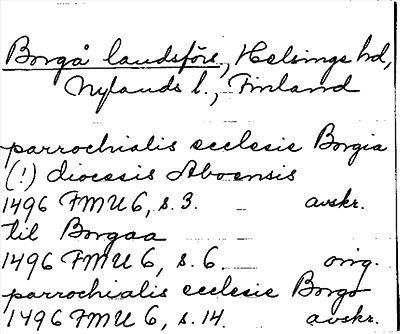 Borgå landsförs., Helsinge hd,
Nylands l., Finland
parrochialis ecclesie Borgia
(!) diocesis Aboensis
1496 FMU 6, s. 3. avskr.
til Borgaa
1496 FMU 6, s. 6. orig.
parrochialis ecclesie Borgo
1496 FMU 6, s. 14. avskr.